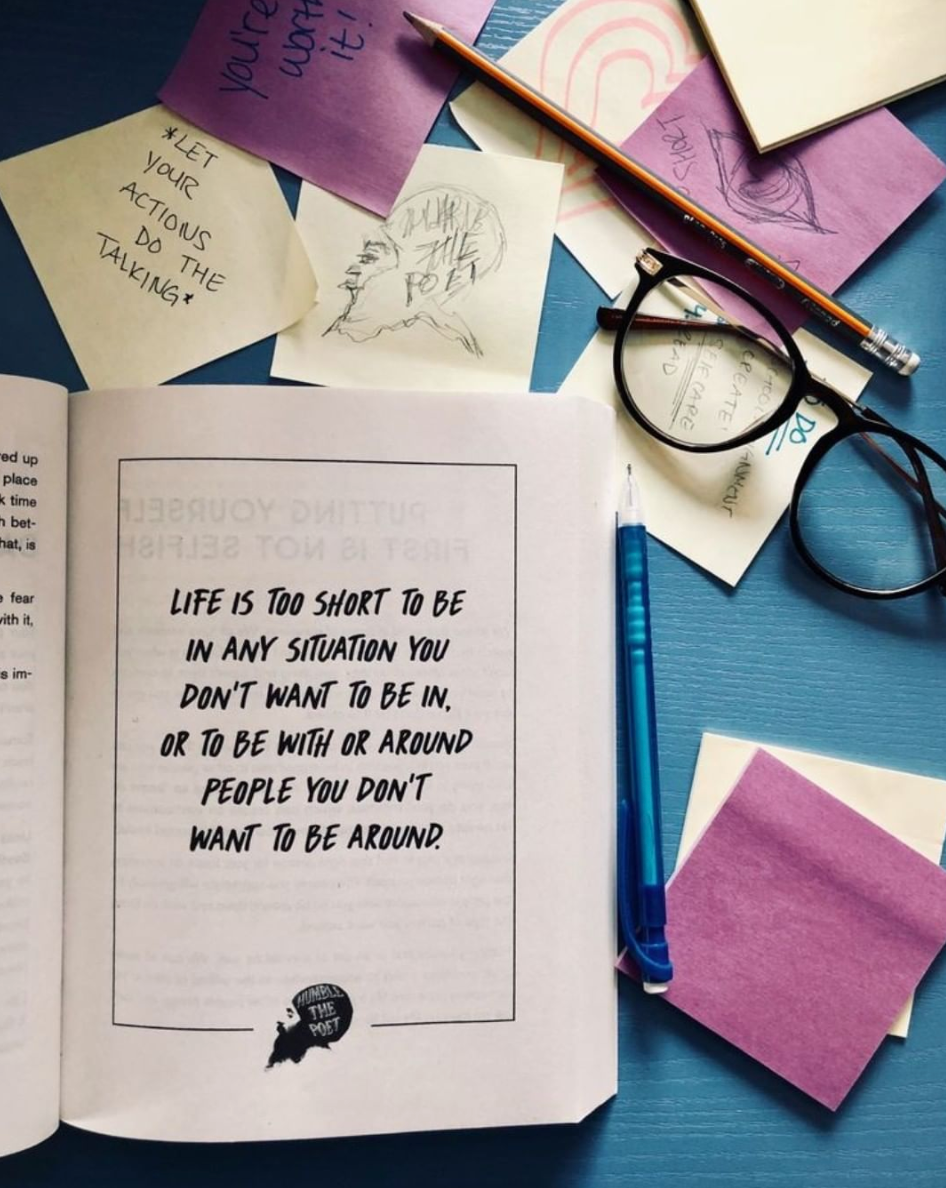 you're
worth
it!
*LET
YOUR
ACTIONS
DO THE
TALKING*
HUMBLE
THE
POET
SHORT
DO
CREATE!
SELF CARE
READ
ed up
place
k time
h bet-
hat, is
fear
with it,
s im-
PUTTING YOURSELF
FIRST IS NOT SELFISH
LIFE IS TOO SHORT TO BE
IN ANY SITUATION YOU
DON'T WANT TO BE IN,
OR TO BE WITH OR AROUND
PEOPLE YOU DON'T
WANT TO BE AROUND.
HUMBLE
THE
POET